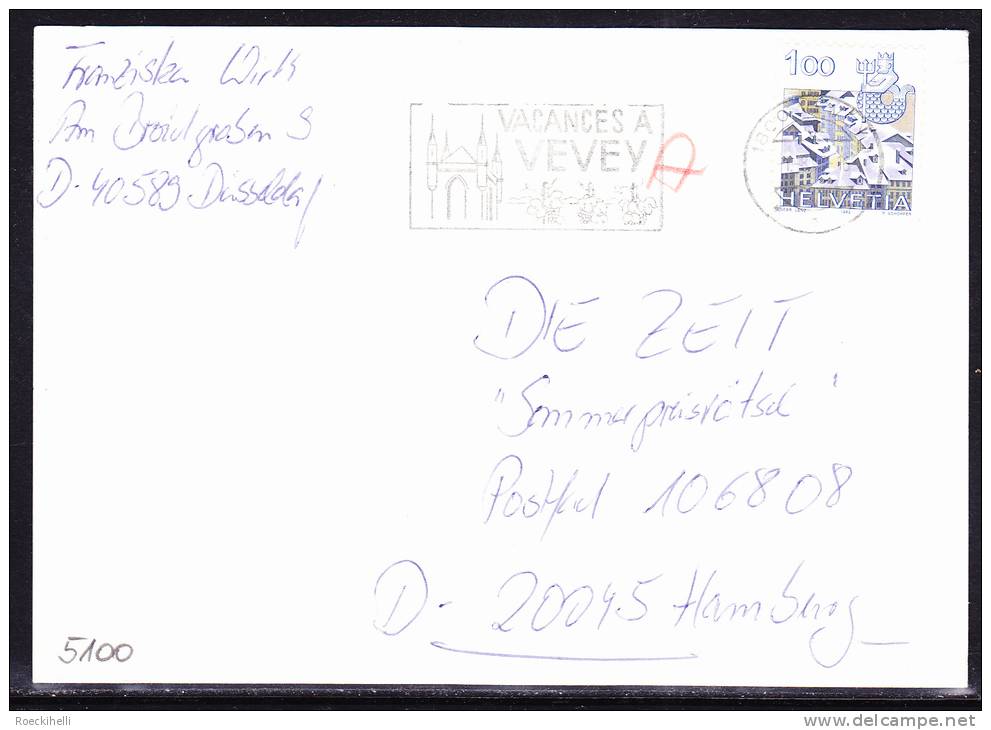 Franziska Wirth
Am Broichgraben 9
D-40589 Düsseldorf
VACANCES À
VEVEY
A
1800
100
HELVETIA
1982
DIE ZEIT
"Sommerpreisrätsel"
Postfach 106808
D-20045 Hamburg
5100
Roeckihelli
www.delcampe.net